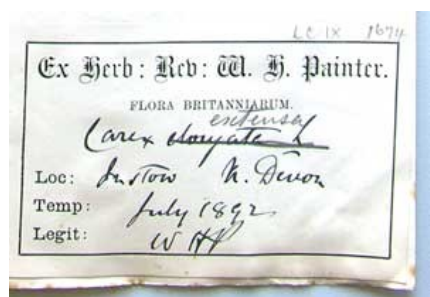 LC IX 1674
Ex Herb: Rev: W. H. Painter.
FLORA BRITANNIARUM.
extensa
Carex elongata L
Loc: Instow N. Devon
Temp: July 1892
Legit: WHP